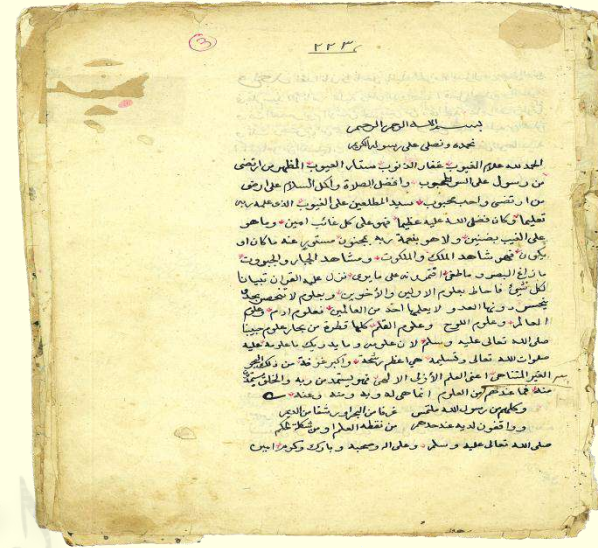 ٣
٢٢٣
بسم الله الرحمن الرحيم
نحمده ونصلي على رسوله الكريم
الحمد لله علام الغيوب غفار الذنوب ستار العيوب المظهر من ارتضى
من رسول على السر المحجوب وافضل الصلاة واكمل السلام على ارضى
من ارتضى واحب محبوب سيد المطلعين على الغيوب الذي علمه ربه
تعليما وكان فضل الله عليه عظيما فهو على كل غائب امين وما هو
على الغيب بضنين ولا هو بنعمة ربه بمجنون مستور عنه ما كان او
يكون فهو شاهد الملك والملكوت ومشاهد الجبار والجبروت
ما زاغ البصر وما طغى افتمرونه على ما يرى نزل عليه القران تبيانا
لكل شيء فاحاط بعلوم الاولين والآخرين وبعلوم لا تنحصر بحد
ينحسر دونها العد ولا يعلمها احد من العالمين فعلوم ادم وعلوم
العالم وعلوم اللوح وعلوم القلم كلها قطرة من بحار علوم حبيبنا
صلى الله تعالى عليه وسلم لان علومه وما يدريك ما علومه عليه
صلوات الله تعالى وتسليمه هي اعظم رشحة واكبر غرفة من ذلك البحر
الغير المتناهي اعني العلم الأزلي الالهي فهو يستمد من ربه والخلق يستمدون
منه فما عندهم من العلوم انما هي له وبه ومنه وعنه
وكلهم من رسول الله ملتمس غرفا من البحر او رشفا من الديم
وواقفون لديه عند حدهم من نقطة العلم او من شكلة الحكم
صلى الله تعالى عليه وسلم وعلى اله وصحبه وبارك وكرم امين